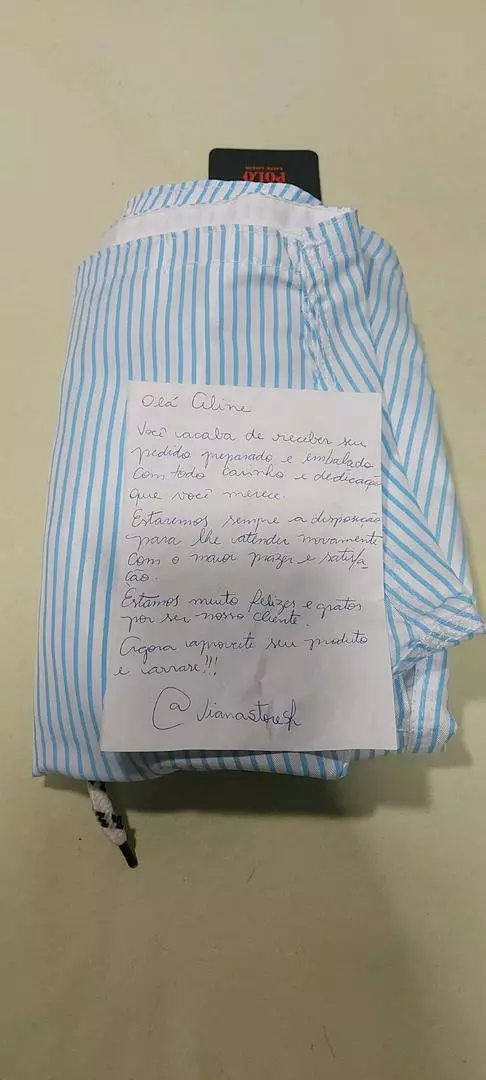 POLO
Olá Aline
Você acaba de receber seu
pedido preparado e embalado
com todo carinho e dedicação
que você merece.
Estaremos sempre a disposição
para lhe atender novamente
com o maior prazer e satisfa
ção.
Estamos muito felizes e gratos
por ser nosso cliente.
Agora aproveite seu produto
e arrase!!!